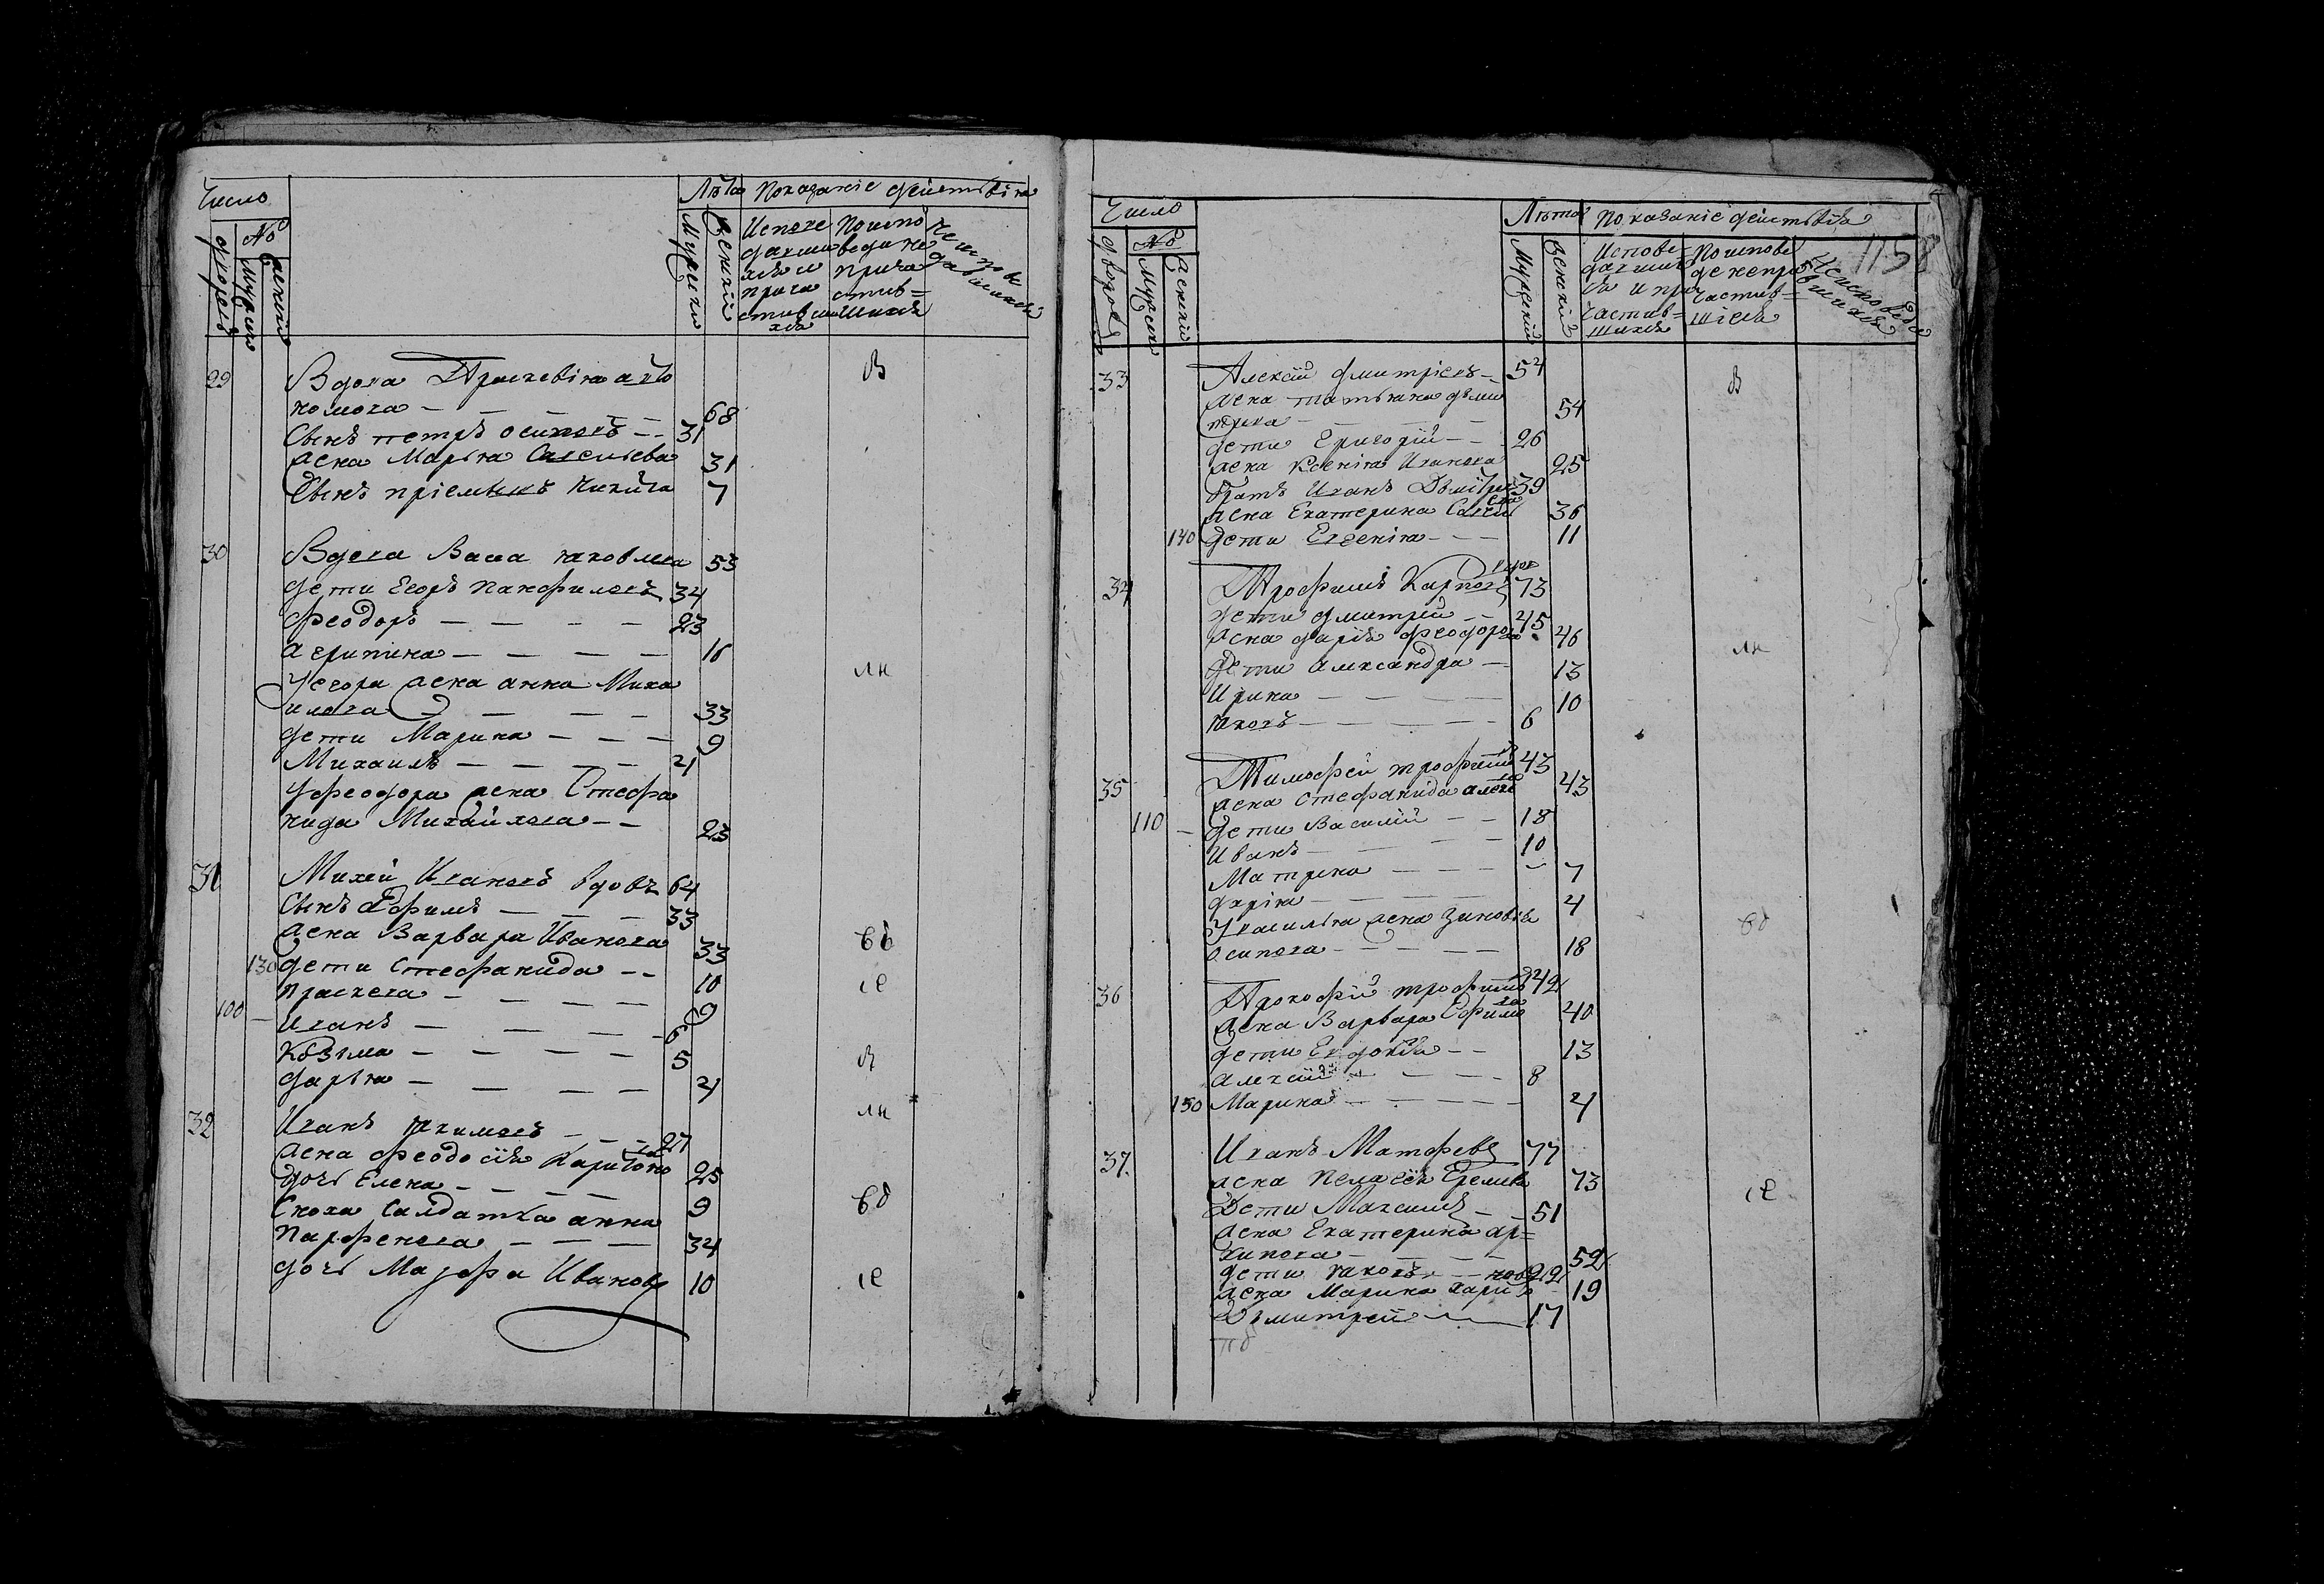 Число
Лѣта Показаніе действія
№
дворовъ
Мужски
женскіи
Мужески
Женскіи
Испове
давши
хся и
прича
стивши
хся
Поиспо
веди не
прича
стив=
шихся
29 Вдова Праскевія
В
68
Сынъ петръ осиповъ — — 31
жена Марья Савельева 31
Сынъ пріемышъ Никита 7
30 Вдова Васса яковлева 53
дети Егоръ Панфиловъ 34
Феодоръ — — — — 23
агрипина — — — — 16
лн
У егора жена анна Миха
илова — — — 33
дети Марина — — — 9
Михаилъ — — — — 4
У феодора жена Стефа
нида Михайлова — — 23
31 Михей Ивановъ вдовъ 64
Сынъ Ефимъ — — — 33
жена Варвара Иванова 33
вд
130 дети Стефанида — — 10
се
Праскева — — — — 9
100 — Иванъ — — — — 6
Козьма — — — — 5
В
дарья — — — — 4
лн
32 Иванъ якимовъ — — 27
жена феодосія Харитоно
ва 25
дочь Елена — — — — 9
Сноха Салдатка анна
вд
Парфенова — — — 34
дочь Марфа Иванов 10
се
Число
Лѣта Показаніе действія
1158
№
дворовъ
Мужеск
женскіи
Мужескіи
Женскіи
Испове=
давши
ся и при
частив=
шихся
Поиспове
де непри
частив=
шіеся
Неисповеда
вшихся
33 Алексій дмитріевъ — 54
В
жена татьяна 54
дети Григорій — — 26
жена Ксенія Иванова 25
братъ Иванъ Дьмитрев 39
жена Екатерина Савель
ева 36
140 дети Евгенія — — — 11
34 Трофимъ Карпов
вдов 73
дети дмитрей — — 45
жена дарія Феодорова 46
лн
дети александра — 13
Ирина — — — — 10
яковъ — — — — 6
35 Тимофей трофимо
в 43
жена Стефанида 43
110 — дети Василій — — 18
Иванъ — — — — 10
Матрена — — — 7
дарія — — — — 4
У василья жена Зиновія
вд
осипова — — — — 18
36 Прокофій трофимо
в 42
жена Варвара Ефимо
ва 40
дети Евдокія — — 13
алексій — — — — 8
150 Марина — — — — 4
37. Иванъ Матфеев 77
жена Пелагея Еремева 73
се
Дети Максимъ — — 51
жена Екатерина ар=
хипова — — — 52
дети яковъ — 22
жена Марина 19
Дьмитрей — 17